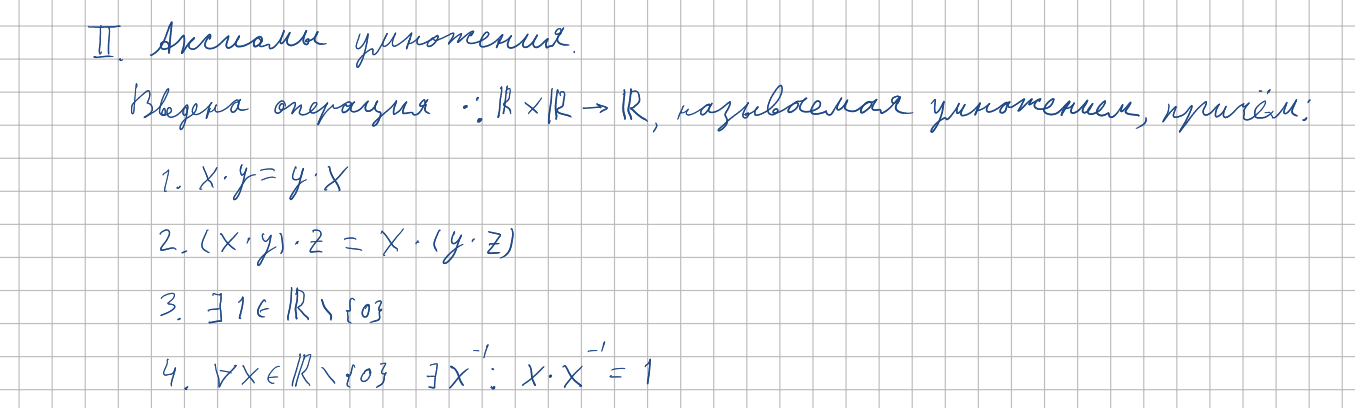 II. Аксиомы умножения.
Введена операция ·: ℝ × ℝ → ℝ, называемая умножением, причём:
1. x · y = y · x
2. (x · y) · z = x · (y · z)
3. ∃ 1 ∈ ℝ \ {0}
4. ∀x ∈ ℝ \ {0} ∃ x⁻¹: x · x⁻¹ = 1